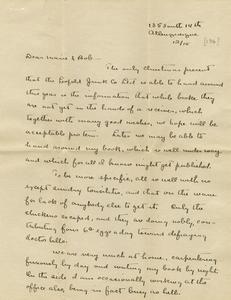 135 South 14th
Albuquerque
12/15
[1936]
Dear Marie & Bob—
The only Christmas present
that the Leopold Junk Co Ltd is able to hand around
this year is the information that while broke they
are not yet in the hands of a receiver, which
together with many good wishes, we hope will be
acceptable to them. Later we may be able to
hand around my book, which is well under way,
and which for all I know might get published.
To be more specific, all is well with no
except sundry tonsilitis, and that on the wane
for lack of anybody else to get it. Only the
chickens escaped, and they are doing nobly, con-
tributing four 6¢ eggs a day toward defraying
doctor bills.
We are very much at home, carpentering
furiously by day and writing my book by night.
On the side I am occasionally working at the
office also, being in fact busy as hell.